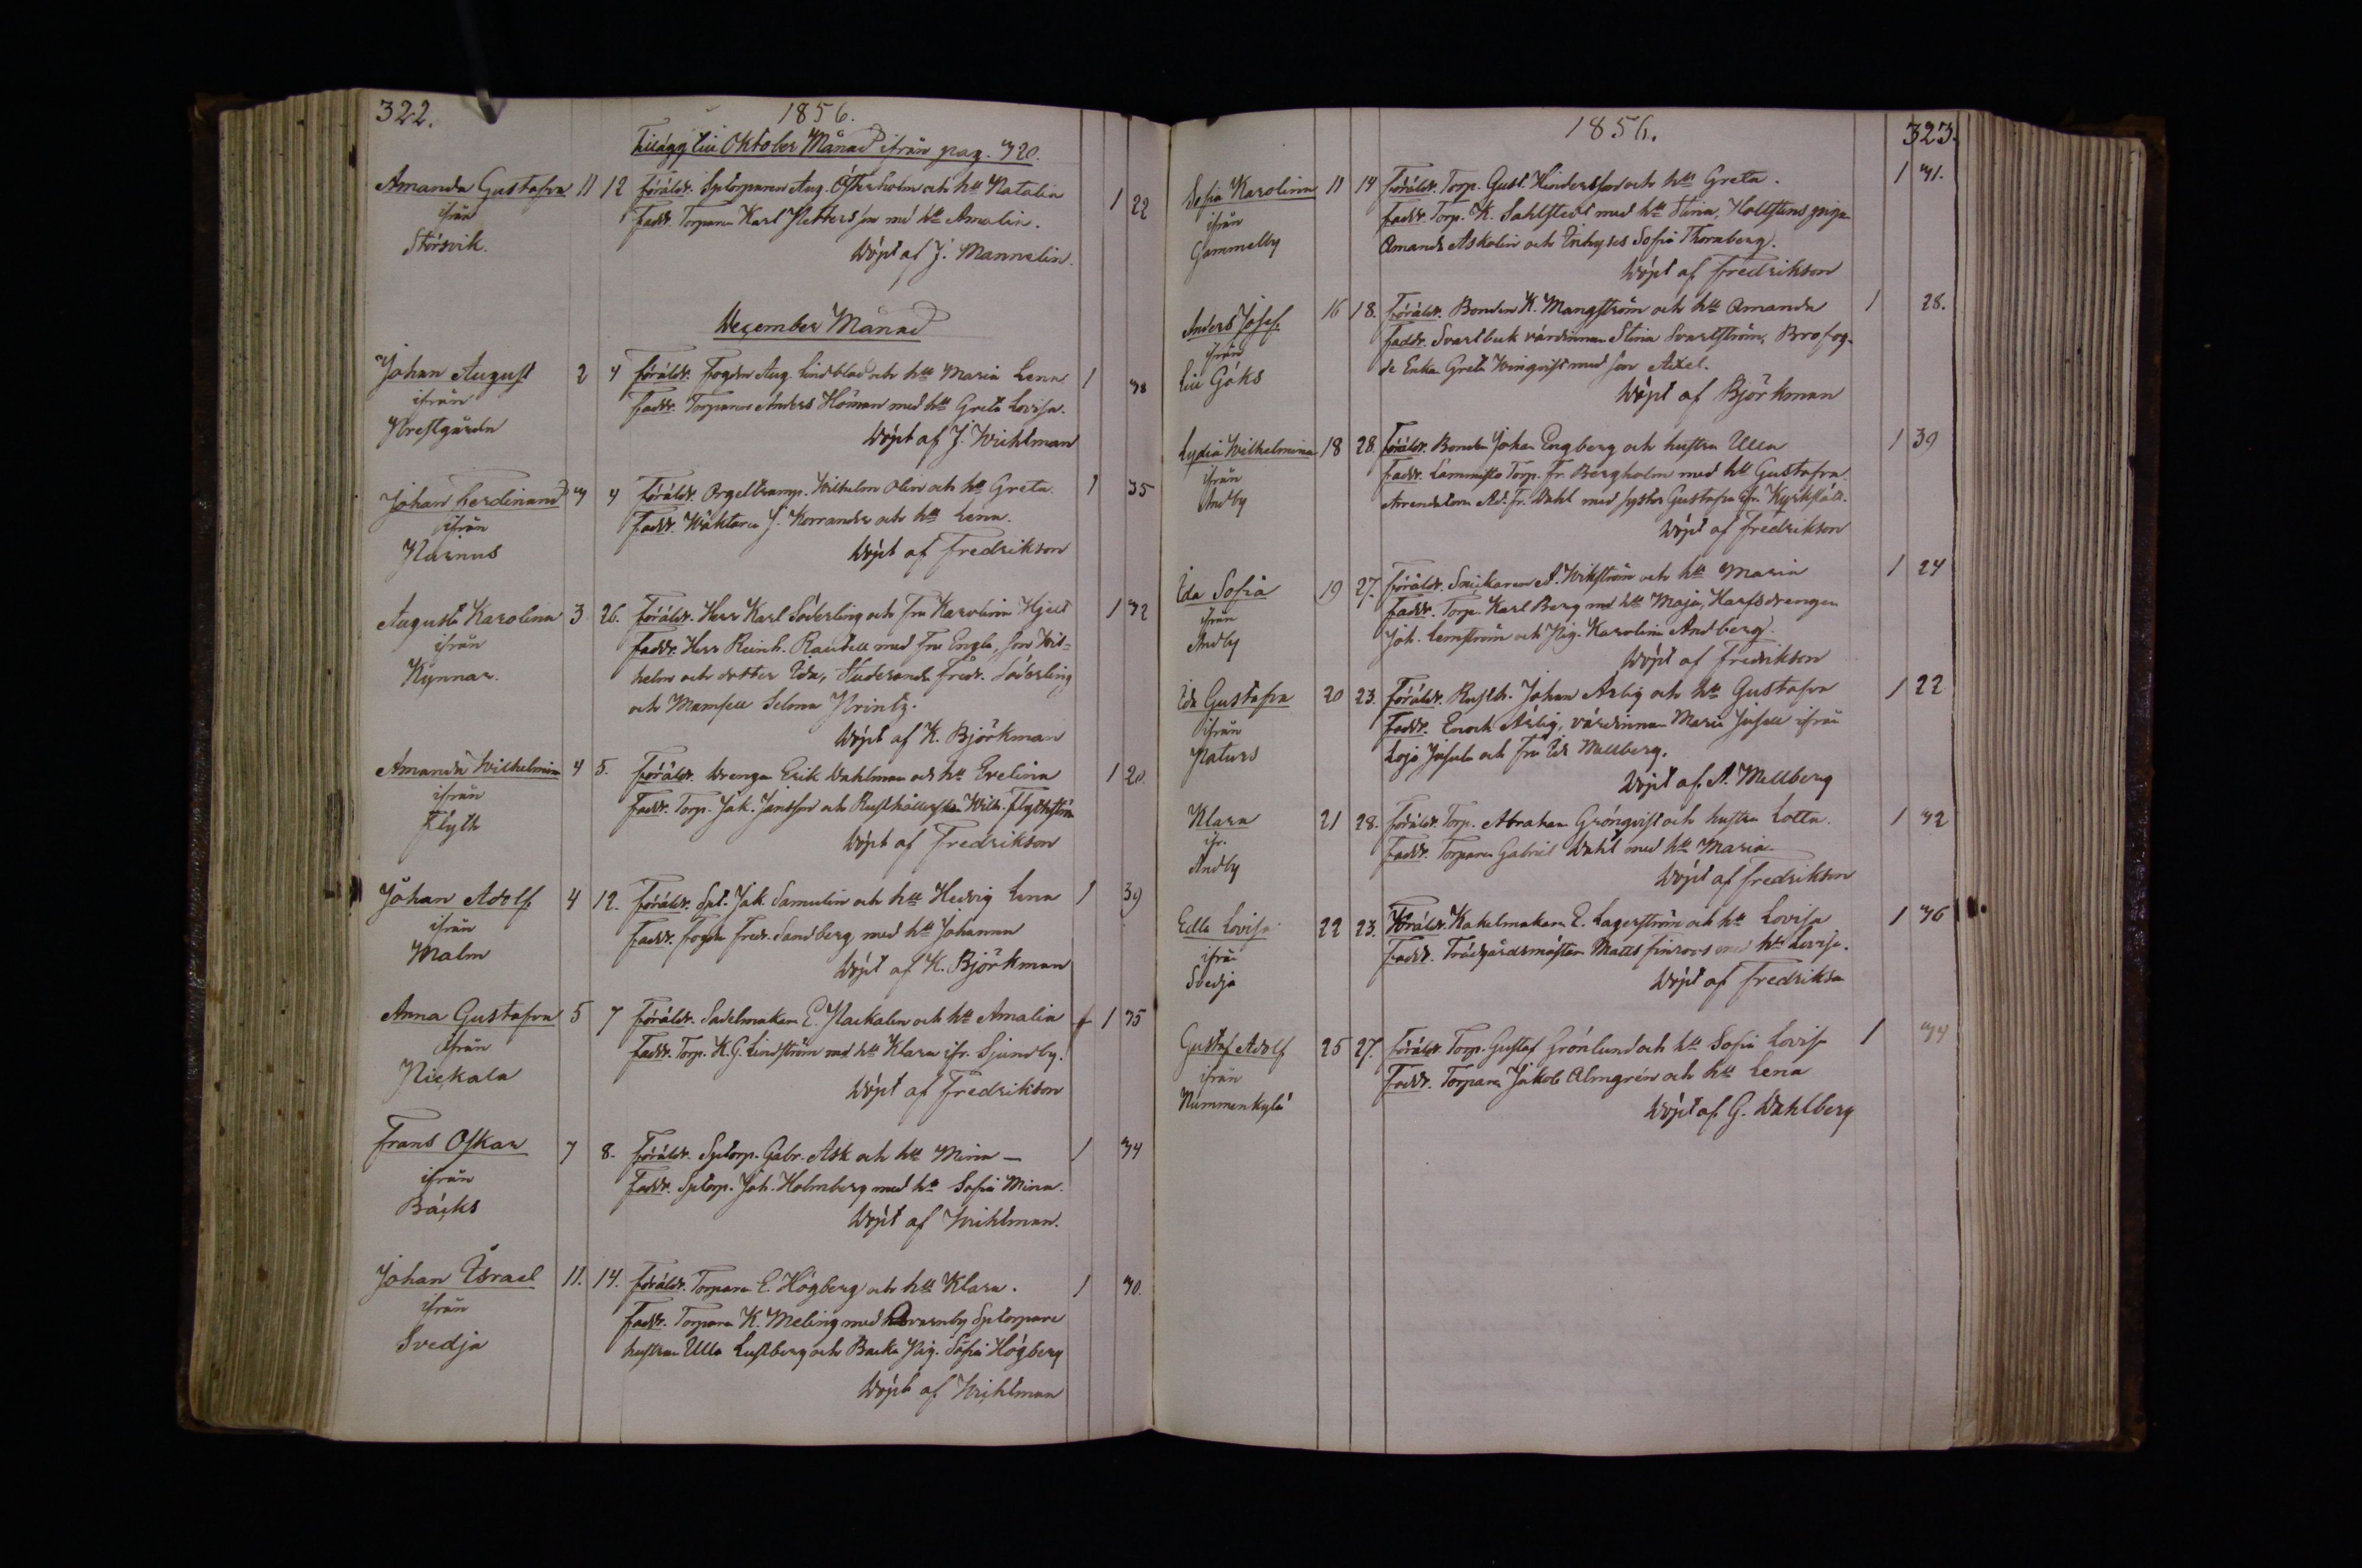 322.
1856.
Tillägg till Oktober Månad ifrån pag. 320.
Amanda Gustafva 11 12 Föräldr. Sptorparen Aug. Österholm och hu Natalia 1 22
ifrån Faddr. Torparen Karl Pettersson med hu Amalia.
Störsvik. Döpt af J. Mannelin.
December Månad
Johan August 2 4 Föräldr. Fogden Aug. Lindblad och hu Maria Lena 1 38
ifrån Faddr. Torparen Anders Höman med hu Greta Lovisa.
Prestgården Döpt af J. Wichtman
Johan Ferdinand 3 4 Föräldr. Orgeltramp. Wilhelm Olin och hu Greta. 1 35
ifrån Faddr. Wäktaren J. Korrander och hu Lena.
Pärnus Döpt af Fredrikson
Augusta Karolina 3 26. Föräldr. Herr Karl Söderling och Fru Karolina Hjelt 1 32
ifrån Faddr. Herr Reinh. Rautell med Fru Engla, Son Wil-
Kynnar. helm och dotter Ida, Studerande Fredr. Söderling
och Mamsell Selma Printz.
Döpt af K. Björkman
Amanda Wilhelmina 4 5. Föräldr. Drengen Erik Dahlman och hu Evelina 1 20.
ifrån Faddr. Torp. Jak. Jansson och Rusthållerskan Wilh. Flythström
Flyth Döpt af Fredrikson
Johan Adolf 4 12. Föräldr. Spt. Jak. Samulin och hu Hedvig Lena 1 39
ifrån Faddr. Fogden Fredr. Sandberg med hu Johanna
Malm Döpt af K. Björkman
Anna Gustafva 5 7 Föräldr. Sadelmakaren E. Packalen och hu Amalia 1 35
ifrån Faddr. Torp. K. G. Lindström med hu Klara ifr. Sjundby.
Pickala Döpt af Fredrikson
Frans Oskar 7 8. Föräldr. Sptorp. Gabr. Ask och hu Mina — 1 34
ifrån Faddr. Sptorp. Joh. Holmberg med hu Sofia Mina.
Bäcks Döpt af Wichtman.
Johan Israel 11. 14. Föräldr. Torparen E. Högberg och hu Klara. 1 30.
ifrån Faddr. Torparen K. Meling med Qvarnby Sptorpare
Svedja hustrun Ulla Lustberg och Backa Pig. Sofia Högberg
Döpt af Wichtman
1856.
323.
Sofia Karolina 11 14 Föräldr. Torp. Gust. Hindersson och hu Greta. 1 31.
ifrån Faddr. Torp. K. Sahlstedt med hu Stina, Hollstens piga
Gammelby Amanda Askolin och Inhyses Sofia Thornberg.
Döpt af Fredrikson
Anders Josef. 16 18. Föräldr. Bonden K. Mangström och hu Amanda 1 28.
ifrån Faddr. Svartbäck värdinnan Stina Svartström, Brofog-
Lill Göks de Enkan Greta Winqvist med son Axel.
Döpt af Björkman
Lydia Wilhelmina 18 28. Föräldr. Bonden Johan Engberg och hustru Ulla 1 39
ifrån Faddr. Torp. Fr. Bergholm med hu Gustafva.
Andby Arrendatorn Ad. Fr. Dahl med syster Gustafva ifr. Kyrkslätt.
Döpt af Fredrikson
Ida Sofia 19 27. Föräldr. Snickaren A. Wikström och hu Maria 1 24
ifrån Faddr. Torp. Karl Berg med hu Maja, Harfs drengen
Andby Joh. Lemström och Pig. Karolina Andberg.
Döpt af Fredrikson
Ida Gustafva 20 23. Föräldr. Rusth. Johan Ärlig och hu Gustafva 1 22
ifrån Faddr. Enock Ärlig, värdinnan Maria Jusell ifrån
Paturs Lojo och Fru Ida Mellberg.
Döpt af A. Mellberg
Klara 21 28. Föräldr. Torp. Abraham Grönqvist och hustru Lotta. 1 32
ifr. Faddr. Torparen Gabriel Dahl med hu Maria.
Andby Döpt af Fredrikson
Edla Lovisa 22 23. Föräldr. Kakelmakaren E. Lagerström och hu Lovisa 1 36
ifrån Faddr. Trädgårdsmästaren Matts Finroos med hu Lovisa.
Svedja Döpt af Fredrikson
Gustaf Adolf 25 27. Föräldr. Torp. Gustaf Grönlund och hu Sofia Lovisa 1 34
ifrån Faddr. Torparen Jakob Almgrén och hu Lena
Nummenkylä Döpt af G. Dahlberg